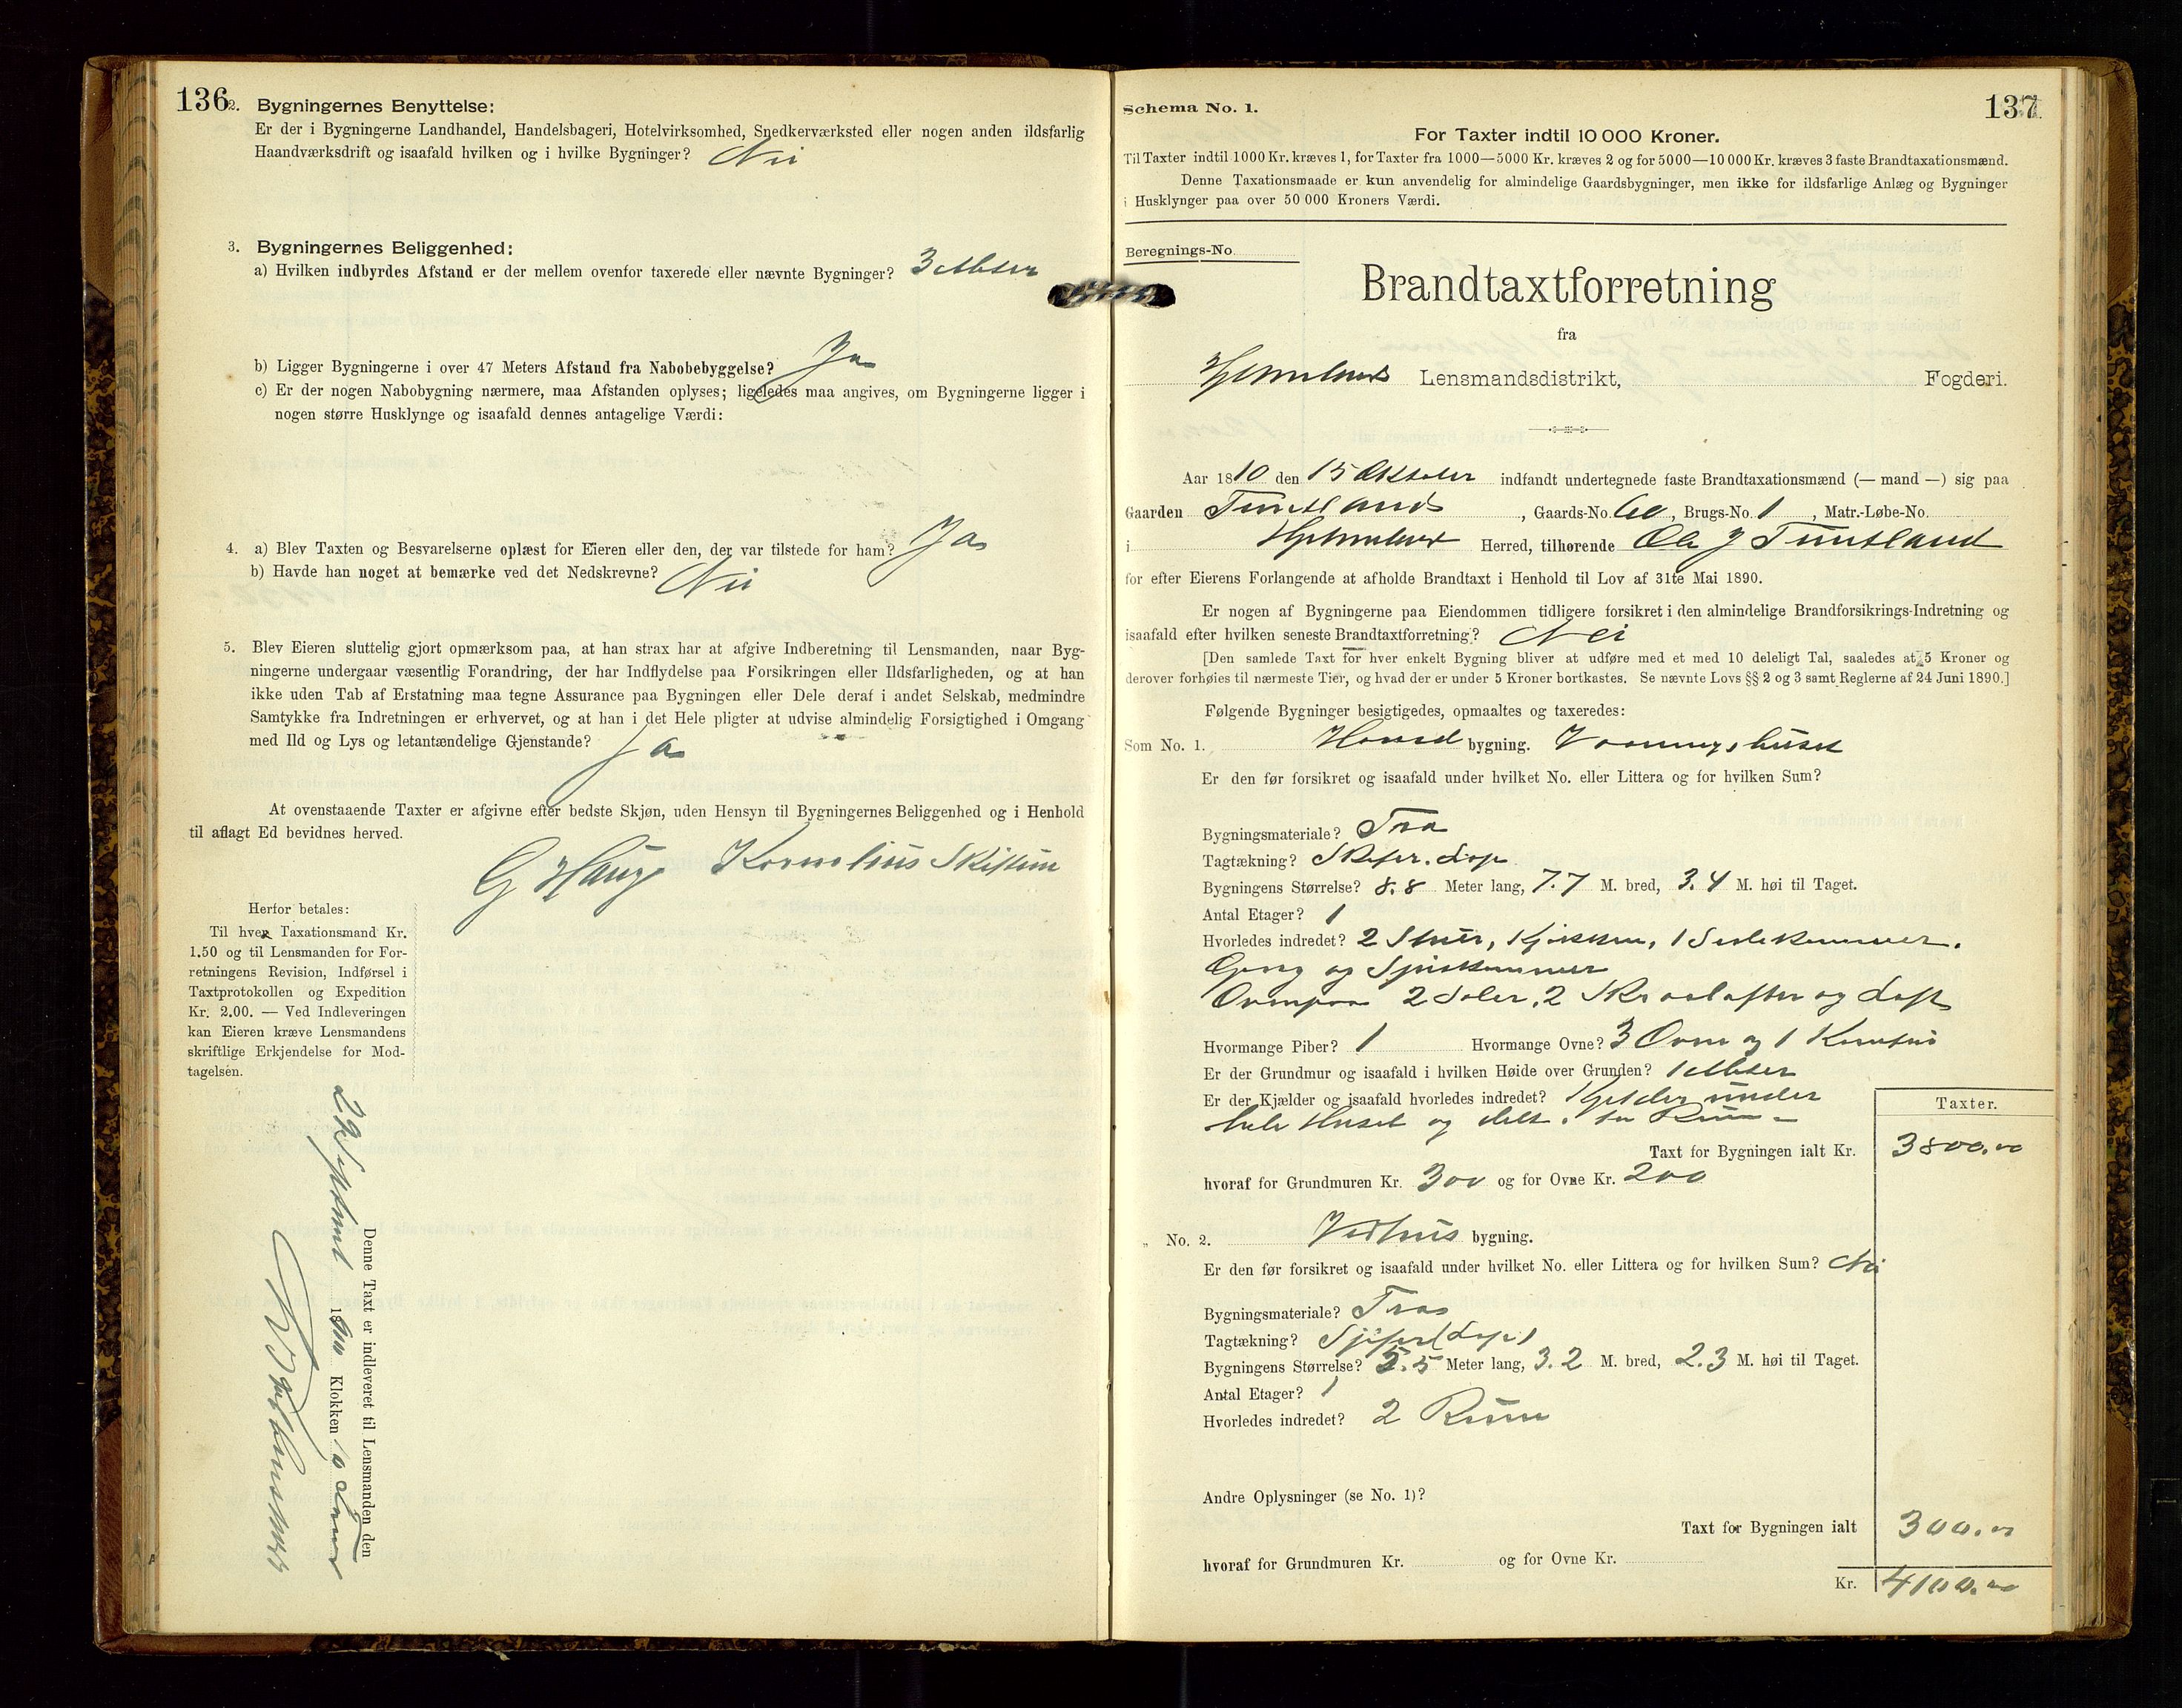 136
2. Bygningernes Benyttelse:
Er der i Bygningerne Landhandel, Handelsbageri, Hotelvirksomhed, Snedkerværksted eller nogen anden ildsfarlig
Haandværksdrift og isaafald hvilken og i hvilke Bygninger? Nei
3. Bygningernes Beliggenhed:
a) Hvilken indbyrdes Afstand er der mellem ovenfor taxerede eller nævnte Bygninger? 3 Meter
b) Ligger Bygningerne i over 47 Meters Afstand fra Nabobebyggelse? Ja
c) Er der nogen Nabobygning nærmere, maa Afstanden oplyses; ligeledes maa angives, om Bygningerne ligger i
nogen større Husklynge og isaafald dennes antagelige Værdi:
4. a) Blev Taxten og Besvarelserne oplæst for Eieren eller den, der var tilstede for ham? Ja
b) Havde han noget at bemærke ved det Nedskrevne? Nei
5. Blev Eieren sluttelig gjort opmærksom paa, at han strax har at afgive Indberetning til Lensmanden, naar Byg-
ningerne undergaar væsentlig Forandring, der har Indflydelse paa Forsikringen eller Ildsfarligheden, og at han
ikke uden Tab af Erstatning maa tegne Assurance paa Bygningen eller Dele deraf i andet Selskab, medmindre
Samtykke fra Indretningen er erhvervet, og at han i det Hele pligter at udvise almindelig Forsigtighed i Omgang
med Ild og Lys og letantændelige Gjenstande? Ja
At ovenstaaende Taxter er afgivne efter bedste Skjøn, uden Hensyn til Bygningernes Beliggenhed og i Henhold
til aflagt Ed bevidnes herved.
G Hauge Kornelius Skiftun
Herfor betales:
Til hver Taxationsmand Kr.
1.50 og til Lensmanden for For-
retningens Revision, Indførsel i
Taxtprotokollen og Expedition
Kr. 2.00. — Ved Indleveringen
kan Eieren kræve Lensmandens
skriftlige Erkjendelse for Mod-
tagelsen.
Denne Taxt er indleveret til Lensmanden den
1910 Klokken 10
Schema No. 1.
137
For Taxter indtil 10 000 Kroner.
Til Taxter indtil 1000 Kr. kræves 1, for Taxter fra 1000—5000 Kr. kræves 2 og for 5000—10 000 Kr. kræves 3 faste Brandtaxationsmænd.
Denne Taxationsmaade er kun anvendelig for almindelige Gaardsbygninger, men ikke for ildsfarlige Anlæg og Bygninger
i Husklynger paa over 50 000 Kroners Værdi.
Beregnings-No.
Brandtaxtforretning
fra
Hjelmeland Lensmandsdistrikt, Fogderi.
Aar 1810 den 15 Oktober indfandt undertegnede faste Brandtaxationsmænd (— mand —) sig paa
Gaarden Tuntland, Gaards-No. 60, Brugs-No. 1, Matr.-Løbe-No.
i Hjelmeland Herred, tilhørende Ole J Tuntland
for efter Eierens Forlangende at afholde Brandtaxt i Henhold til Lov af 31te Mai 1890.
Er nogen af Bygningerne paa Eiendommen tidligere forsikret i den almindelige Brandforsikrings-Indretning og
isaafald efter hvilken seneste Brandtaxtforretning? Nei
[Den samlede Taxt for hver enkelt Bygning bliver at udføre med et med 10 deleligt Tal, saaledes at 5 Kroner og
derover forhøies til nærmeste Tier, og hvad der er under 5 Kroner bortkastes. Se nævnte Lovs §§ 2 og 3 samt Reglerne af 24 Juni 1890.]
Følgende Bygninger besigtigedes, opmaaltes og taxeredes:
Som No. 1. Hoved bygning. Vaaningshuset
Er den før forsikret og isaafald under hvilket No. eller Littera og for hvilken Sum?
Bygningsmateriale? Træ
Tagtækning? Skifer.
Bygningens Størrelse? 8.8 Meter lang, 7.7 M. bred, 3.4 M. høi til Taget.
Antal Etager? 1
Hvorledes indredet? 2 Stuer, Kjøkken, 1 Sidekammer.
Gang og Spiskammer
Ovenpaa 2 Saler, 2 Skraalofter og Loft
Hvormange Piber? 1 Hvormange Ovne? 3 Ovne og 1 Komfur
Er der Grundmur og isaafald i hvilken Høide over Grunden? 1 Meter
Er der Kjælder og isaafald hvorledes indredet? Kjelder under
hele Huset og delt i to Rum
Taxter.
Taxt for Bygningen ialt Kr. 3800.00
hvoraf for Grundmuren Kr. 300 og for Ovne Kr. 200
„ No. 2. Vedhus bygning.
Er den før forsikret og isaafald under hvilket No. eller Littera og for hvilken Sum? Nei
Bygningsmateriale? Træ
Tagtækning?
Bygningens Størrelse? 5.5 Meter lang, 3.2 M. bred, 2.3 M. høi til Taget.
Antal Etager? 1
Hvorledes indredet? 2 Rum
Andre Oplysninger (se No. 1)?
Taxt for Bygningen ialt 300.00
hvoraf for Grundmuren Kr. og for Ovne Kr.
Kr. 4100.00